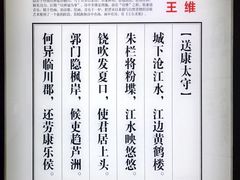 王维
【送康太守】
城下沧江水，江边黄鹤楼。
朱栏将粉堞，江水映悠悠。
铙吹发夏口，使君居上头。
郭门隐枫岸，候吏趋芦洲。
何异临川郡，还劳康乐侯。